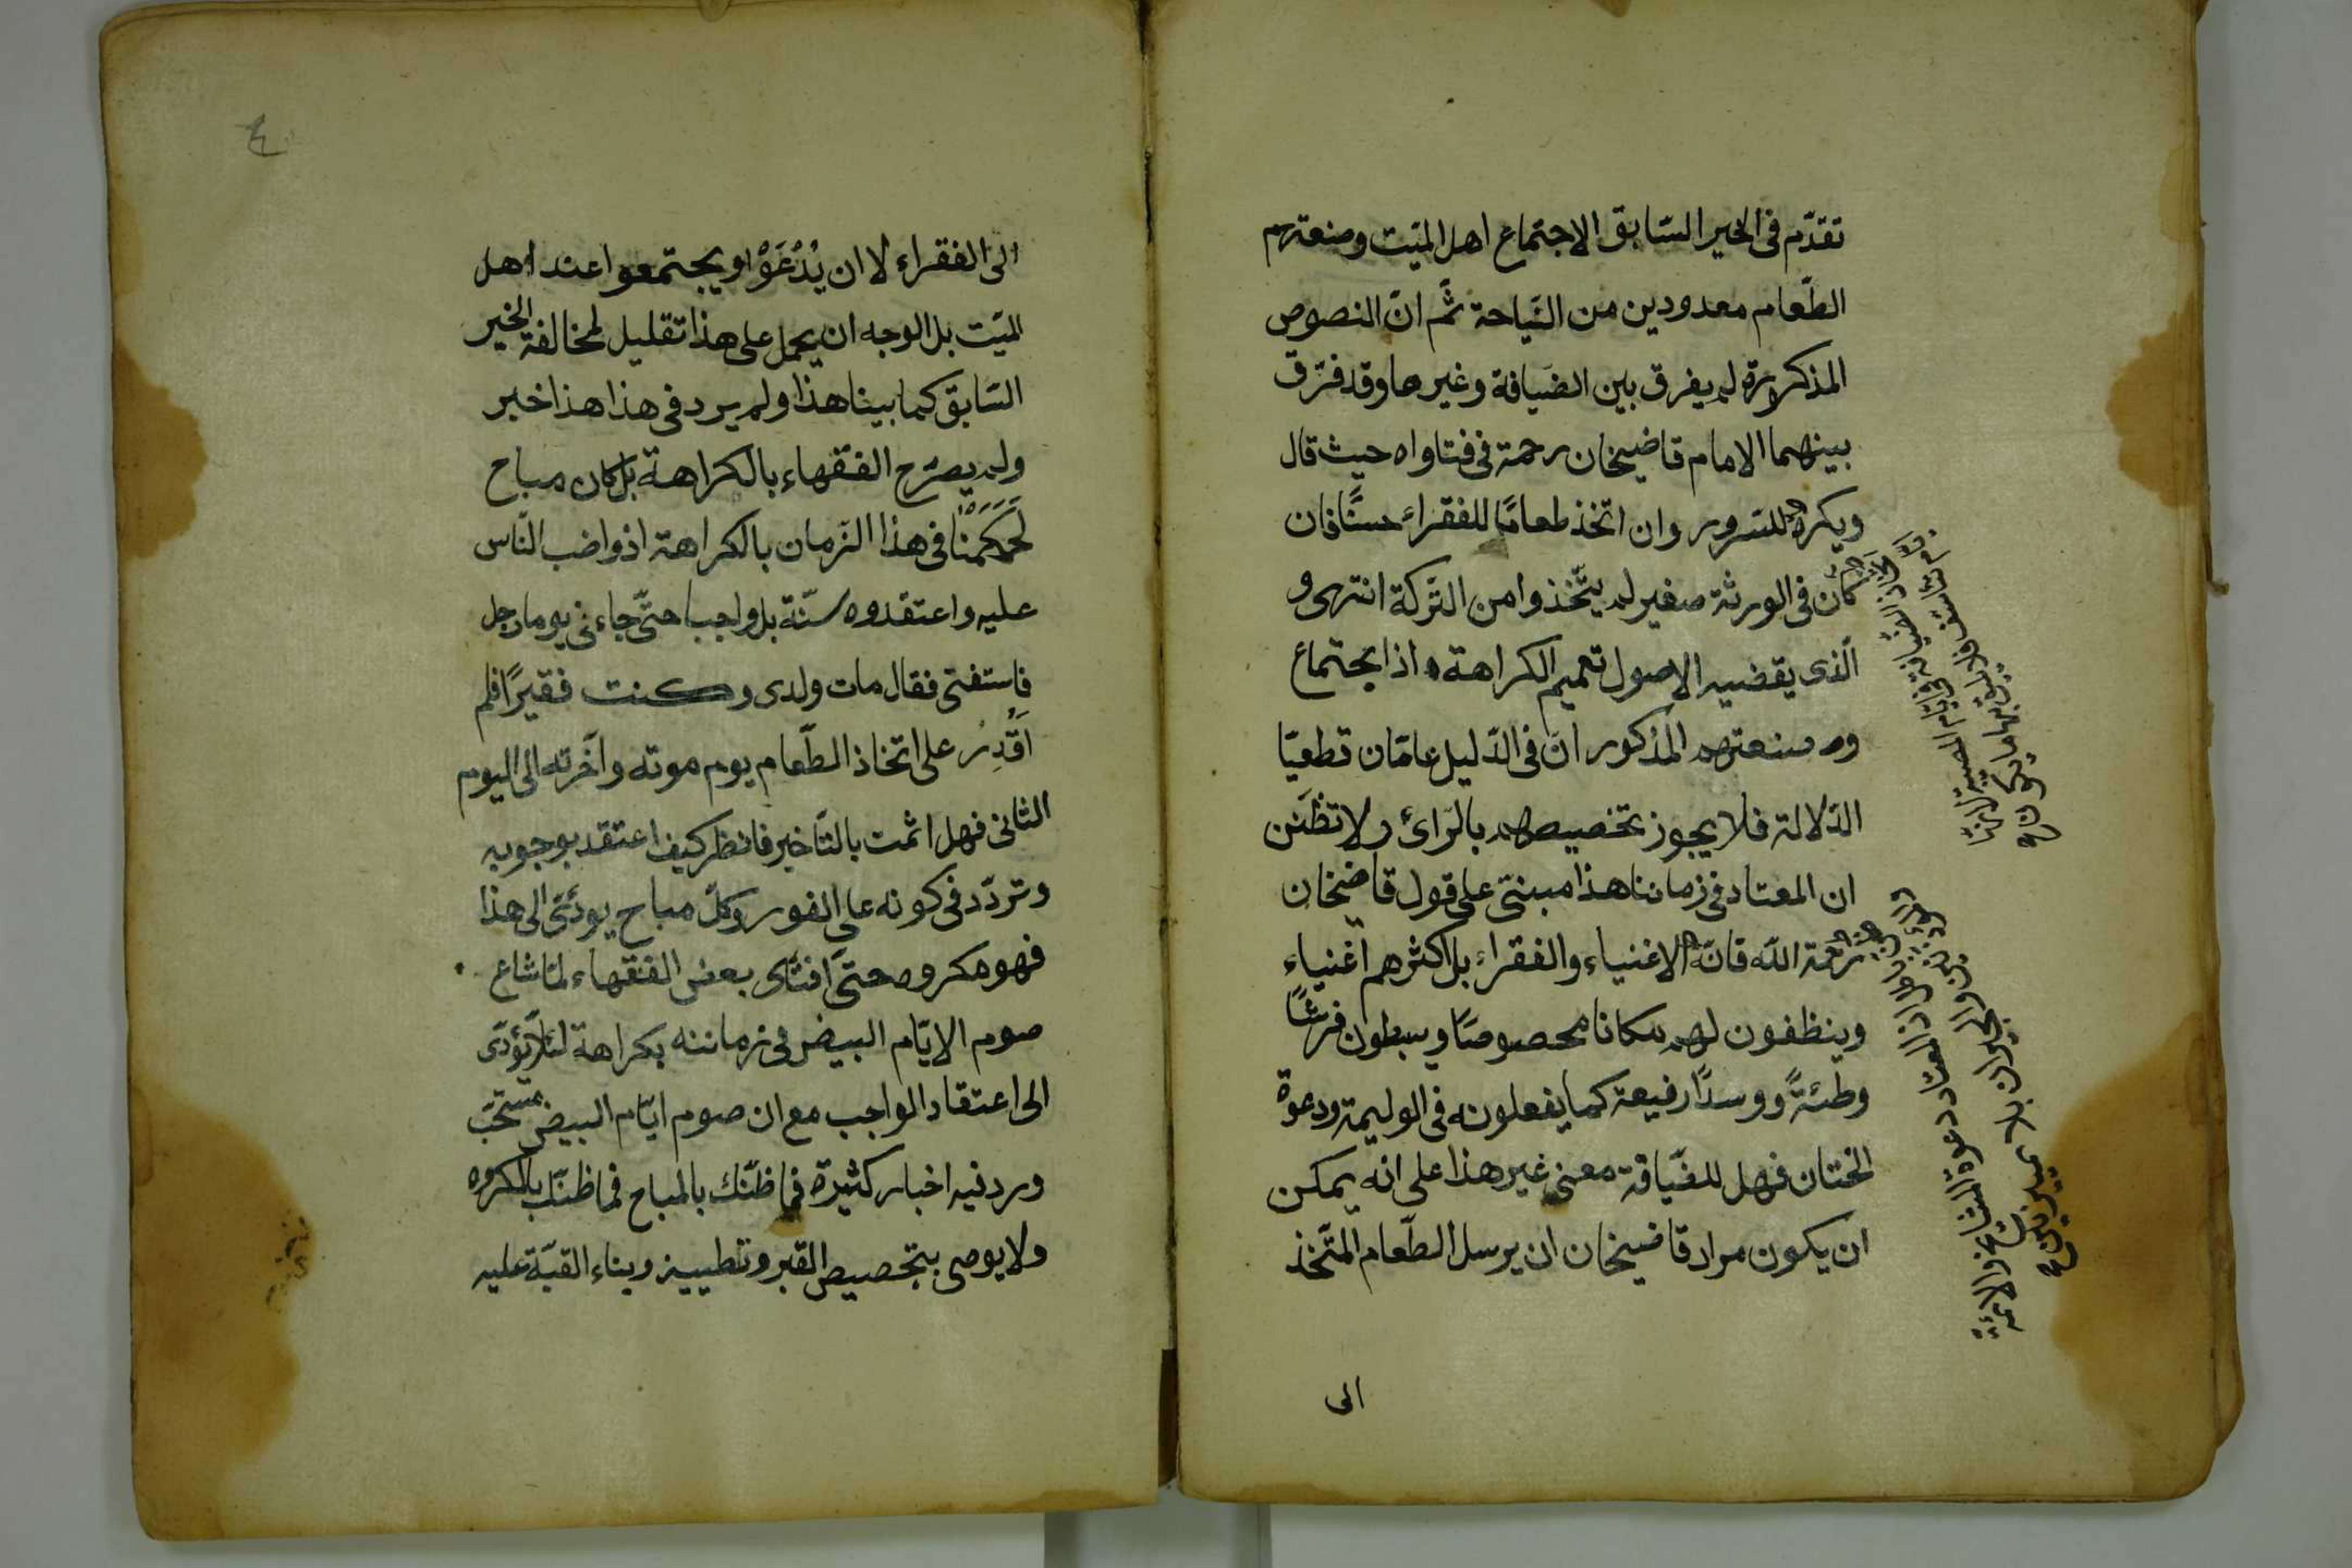 تقدّم فى الخير السّابق الاجتماع اهل الميّت وصنعتهم
الطّعام معدودين من النّياحة ثمّ انّ النصوص
المذكورة لم يفرق بين الضيافة وغيرها وقد فرّق
بينهما الامام قاضيخان رحمة فى فتاواه حيث قال
ويكره للسّرور وان اتخذ طعامًا للفقراء حسنًا فان
كان فى الورثة صغير لم يتّخذوا من التّركة انتهى و
الّذى يقضيه الاصول تعميم الكراهة اذا يجتماع
وصنعتهم المذكور انّ فى الدّليل عامّان قطعيّا
الدّلالة فلا يجوز تخصيصهم بالرّائ ولا تظنّن
ان المعتاد فى زماننا هذا مبنىّ على قول قاضخان
رحمة اللّه فانّه الاغنياء والفقراء بل اكثرهم اغنياء
وينظفون لهم مكانا مخصوصًا ويبسطون فرشًا
وطئةً ووسدًا رفيعة كما يفعلونه فى الوليمة ودعوة
الختان فهل للضّيافة معنى غير هذا على انه يمكن
ان يكون مراد قاضيخان ان يرسل الطّعام المتّخذ
الى
اتخاذ الضيافة فى ايّام المصيبة لانّها
ايّام تأسّف فلا يليق بها ما يكون
اذ المعتاد دعوة المشايخ والائمّة
والجيران بلا تمييز بين
٤
الى الفقراء لا ان يُدْعَوْا ويجتمعوا عند اهل
الميّت بل الوجه ان يحمل على هذا تقليل لمخالفة الخير
السّابق كما بينا هذا ولم يرد فى هذا هذا خبر
ولم يصرّح الفقهاء بالكراهة بل كان مباح
لَحَكَمْنَا فى هذا الزمان بالكراهة اذ واضب النّاس
عليه واعتقدوه سنّة بل واجبا حتّى جاءنى يوما رجل
فاستفتى فقال مات ولدى وكنت فقيرًا فلم
اَقْدِرْ على اتخاذ الطّعام يوم موته وآخّرته الى اليوم
الثانى فهل اثمت بالتّاخير فانظر كيف اعتقد بوجوبه
وتردّد فى كونه على الفور وكلّ مباح يودّى الى هذا
فهو مكروه حتّى افتاى بعض الفقهاء لمّا شاع
صوم الايّام البيض فى زماننه بكراهة لئلّا يؤدّى
الى اعتقاد الواجب مع ان صوم ايّام البيض مستحّب
ورد فيه اخبار كثيرة فما ظنّك بالمباح فما ظنّك بالمكروه
ولا يوصى بتجصيص القبر وتطيينه وبناء القبّة عليه